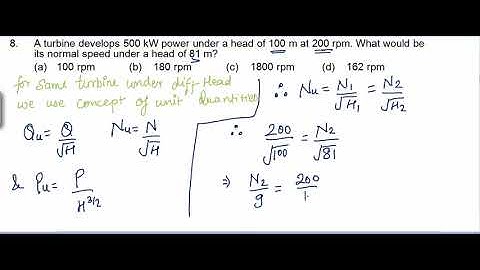 8. A turbine develops 500 kW power under a head of 100 m at 200 rpm. What would be
its normal speed under a head of 81 m?
(a) 100 rpm (b) 180 rpm (c) 1800 rpm (d) 162 rpm
for same turbine under diff Head
we use concept of unit Quantities
Qu = Q/√H Nu = N/√H
& Pu = P/H^3/2
∴ Nu = N1/√H1 = N2/√H2
∴ 200/√100 = N2/√81
⇒ N2/9 = 200/1